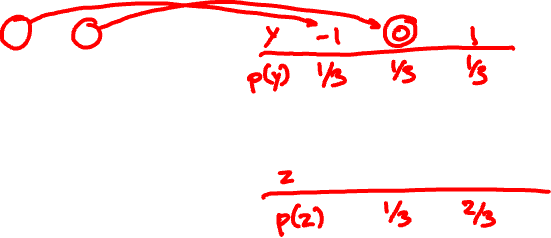 y -1 0 1
p(y) 1/3 1/3 1/3
z
p(z) 1/3 2/3